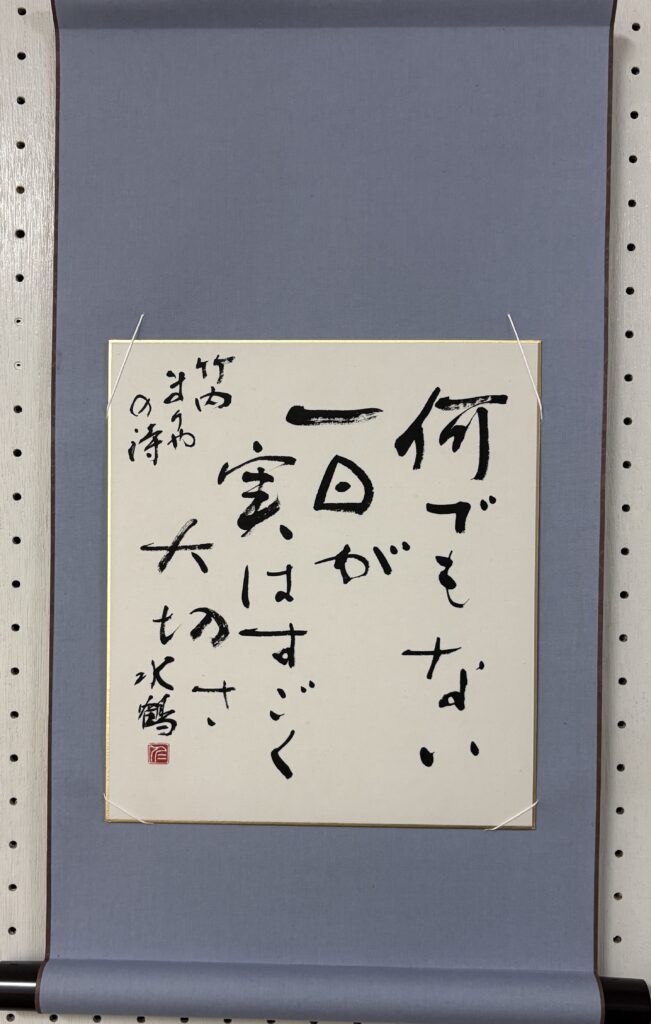 何でもない
一日が
実はすごく
大切さ
竹内
まりや
の詩
水鶴